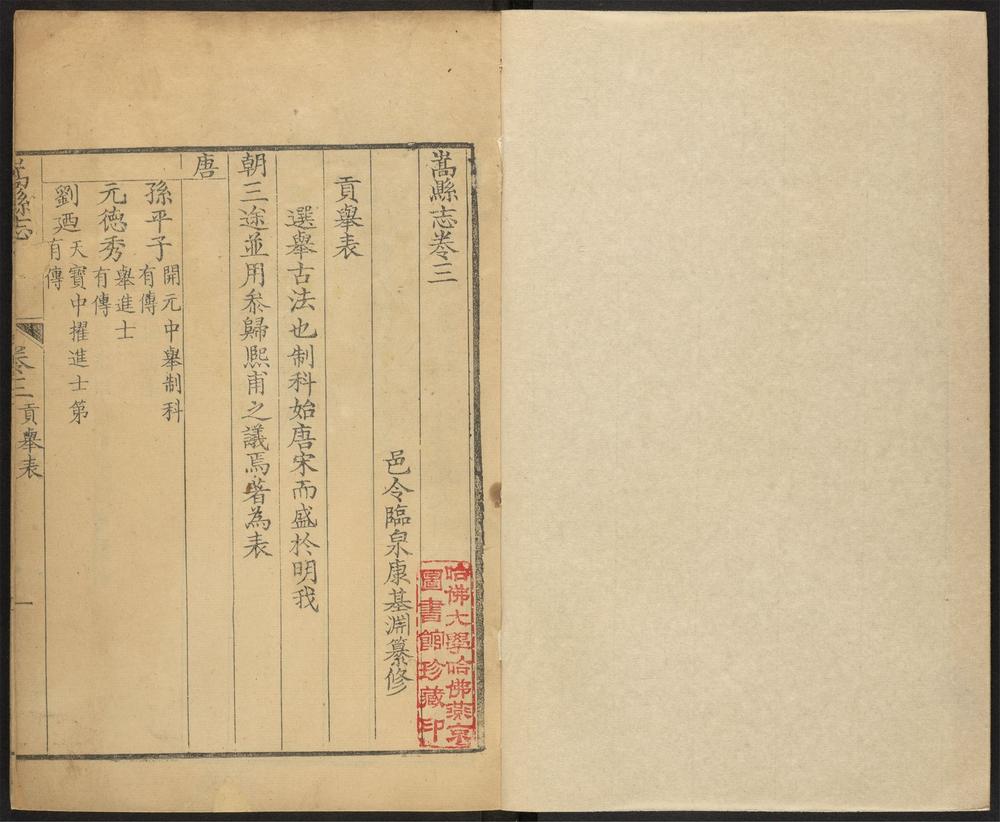 嵩縣志卷三
邑令臨泉康基淵纂修
貢舉表
選舉古法也制科始唐宋而盛於明我
朝三途並用叅歸熙甫之議焉著為表
唐
孫平子
開元中舉制科
有傳
元德秀
舉進士
有傳
劉廼
天寶中擢進士第
有傳
嵩縣志
卷三
貢舉表
一
哈佛大學哈佛燕京
圖書館珍藏印